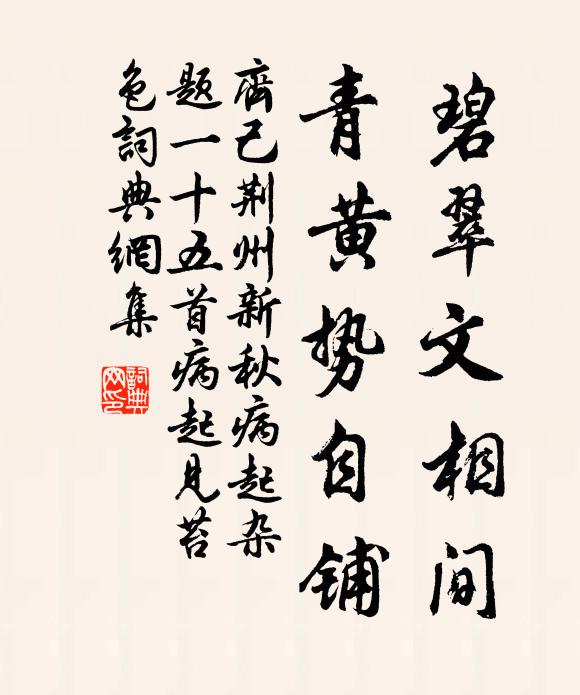 碧翠文相间
青黄势自铺
齊己荆州新秋病起杂
题一十五首病起见苔
色詞典網集
詞典
网印